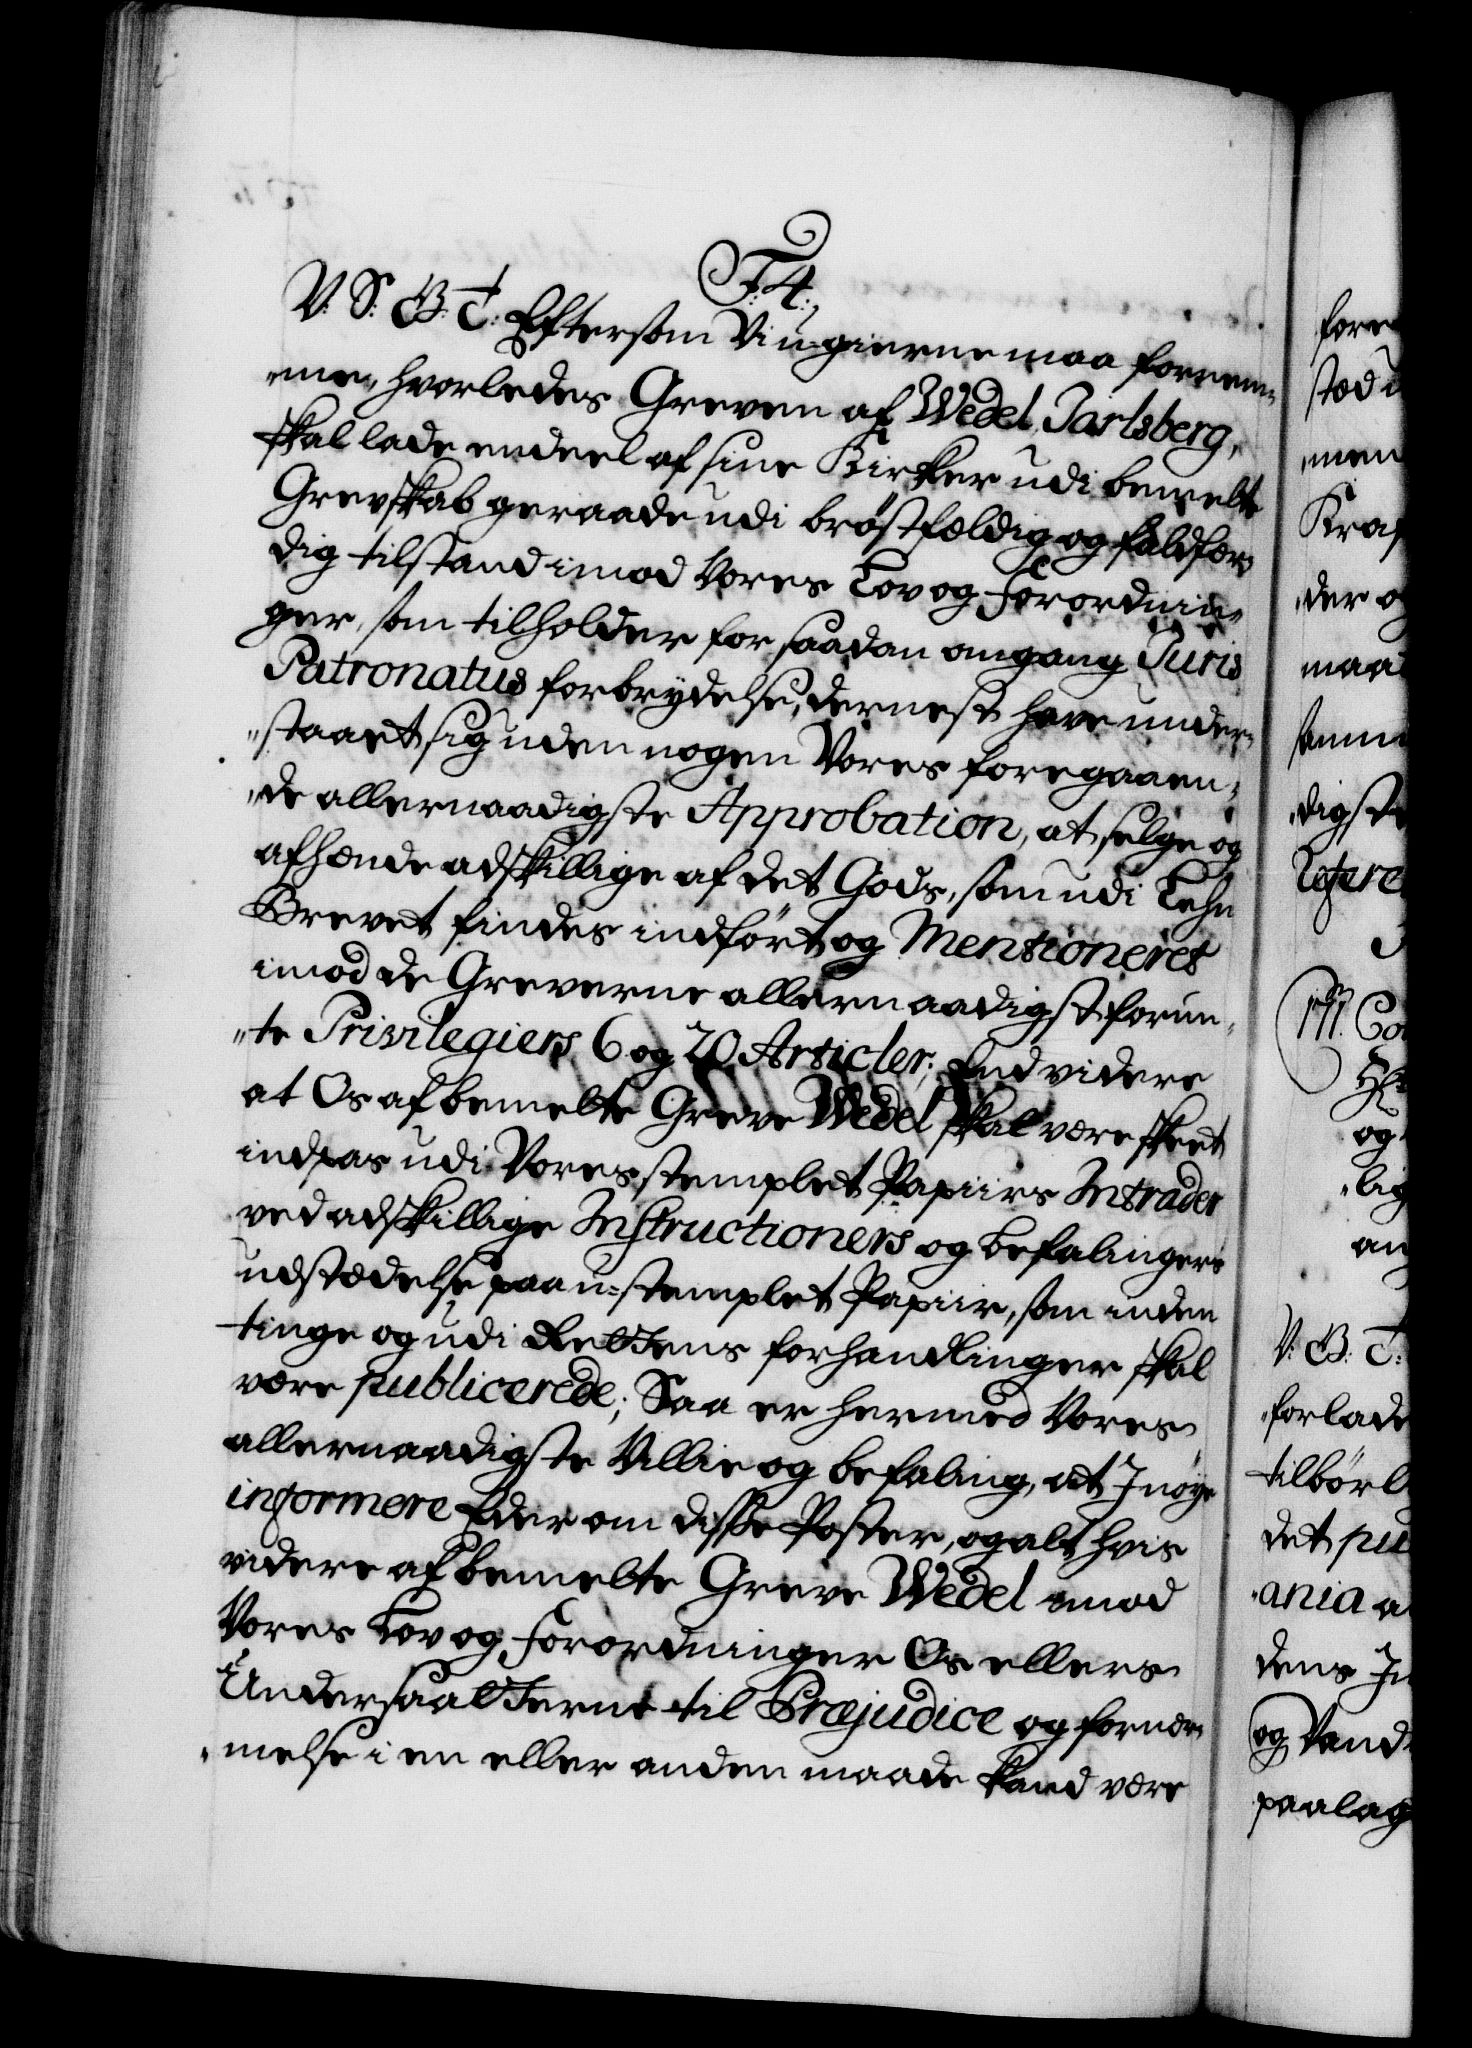 F. 4.
V. S. G. T: Eftersom Vi u-gierne maa fornem-
"me, hvorledes Greven af Wedel Jarlsberg,
skal lade endeel af sine Kirker udi bemelte
Grevskab geraade udi brøstfældig og faldfær-
dig tilstand imod Vores Lov og Forordnin-
ger, som tilholder for saadan omgang Juris
Patronatus forbrydelse, dernest have under-
"staaet sig uden nogen Vores foregaaen-
"de allernaadigste Approbation, at selge og
afhænde adskillige af det Gods, som udi Lehn
Brevet findes indført og Mentioneret
imod de Greverne allernaadigst forun-
"te Privilegiers 6 og 20 Articler; End videre
at Os af bemelte Greve Wedel skal være skeet
indpas udi Vores stemplet Papiirs Intrader
ved adskillige Instructioners og befalingers
udstædelse paa u-stemplet Papiir, som inden
tinge og udi Rettens forhandlinger skal
være publicerede; Saa er hermed Vores
allernaadigste Villie og befaling, at I nøye
informere Eder om disse Poster, og alt hvis
videre af bemelte Greve Wedel imod
Vores Lov og Forordninger Os ellers
Undersaatterne til Præjudice og fornær-
"melse i en eller anden maade kand være
fore
men
Kraf
"der o
maa
"digste
refere
M. Co
og
"lig
an
V. G. T:
"forlade
tilbørl
det pu
"ania a
dens In
og Vand
paalag